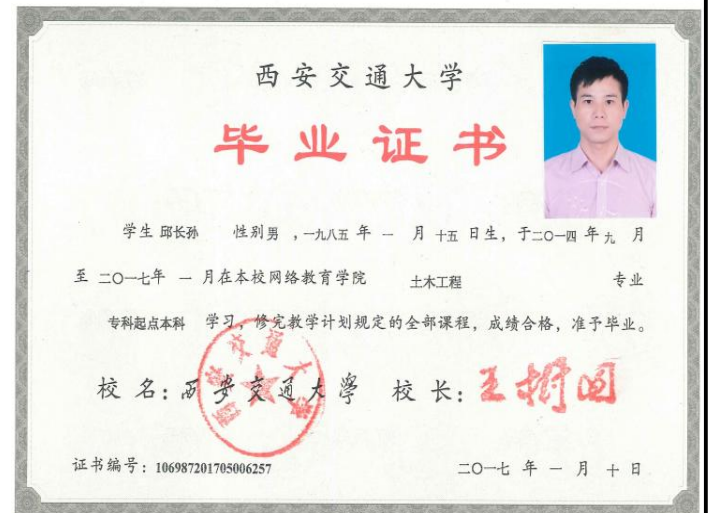 西安交通大学
毕业证书
学生 邱长孙 性别 男 ，一九八五 年 一 月 十五 日生，于二〇一四 年 九 月
至 二〇一七年 一 月在本校网络教育学院 土木工程 专业
专科起点本科 学习，修完教学计划规定的全部课程，成绩合格，准予毕业。
校 名：西安交通大學 校 长：王树国
西安交通大学
证书编号：106987201705006257
二〇一七 年 一 月 十 日